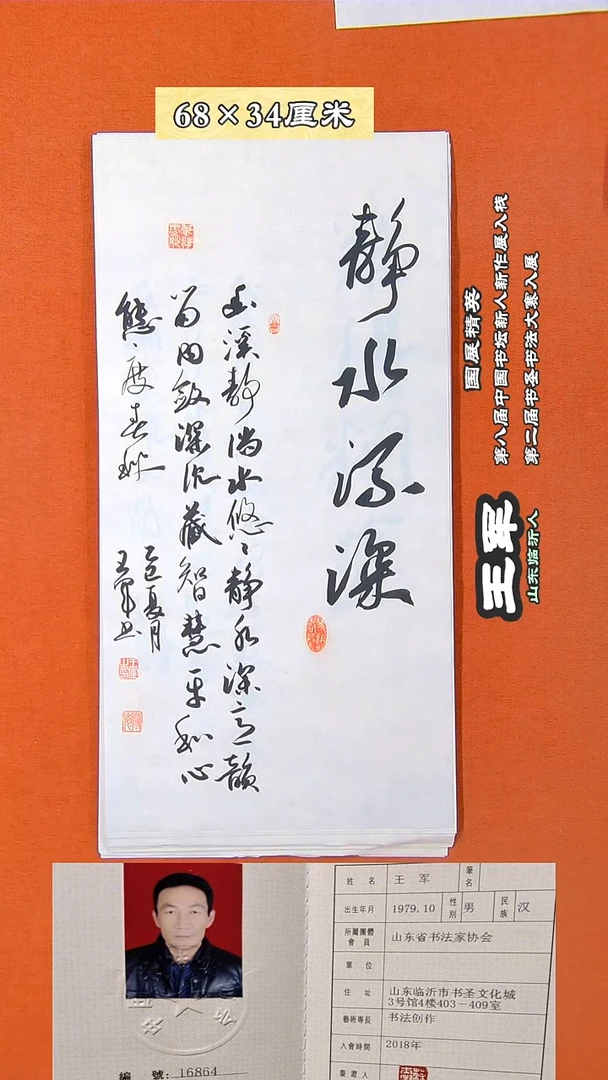 68×34厘米
静水流深
小溪静淌水悠悠静水深之韵
留内敛深沉藏智慧平和心
态度春秋
乙巳夏月
王军书
国展精英
第八届中国书坛新人新作展入展
第二届书圣书法大赛入展
王军
山东临沂人
姓 名 王 军 筆名
出生年月 1979.10 性別 男 民族 汉
所屬團體會員 山东省书法家协会
單 位
住 址 山东临沂市书圣文化城
3号馆4楼403-409室
藝術專長 书法创作
入會時間 2018年
簽證人
編 號: 16864